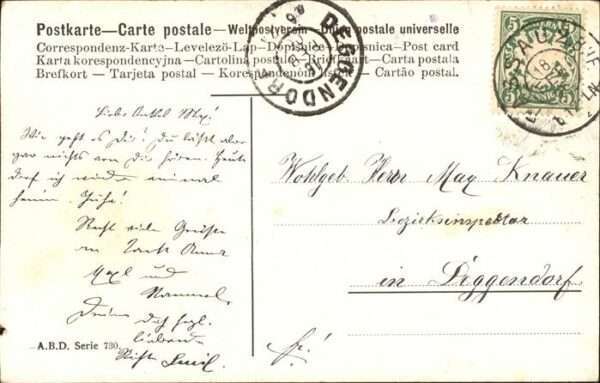 Postkarte—Carte postale—Weltpostverein—Union postale universelle
Correspondenz-Karte—Levelező-Lap—Dopisnice—Dopisnica—Post card
Karta korespondencyjna—Cartolina postale—Briefkaart—Carta postala
Brefkort—Tarjeta postal—Korespondenčni listek—Cartão postal.
DEGGENDORF
5 5
5 5
Lieber Onkel Max!
Wie geht es Dir? Du läßt aber
gar nichts von Dir hören. Heute
darf ich wieder einmal
heim. Juhe!
Recht viele Grüße
an Tante Anna
Maxl und
Mammerl.
Deine Dich herzl.
liebende
Nichte Emil.
Wohlgeb. Herr Max Knauer
Bezirksinspektor
in Deggendorf
fr.!
A.B.D. Serie 730.